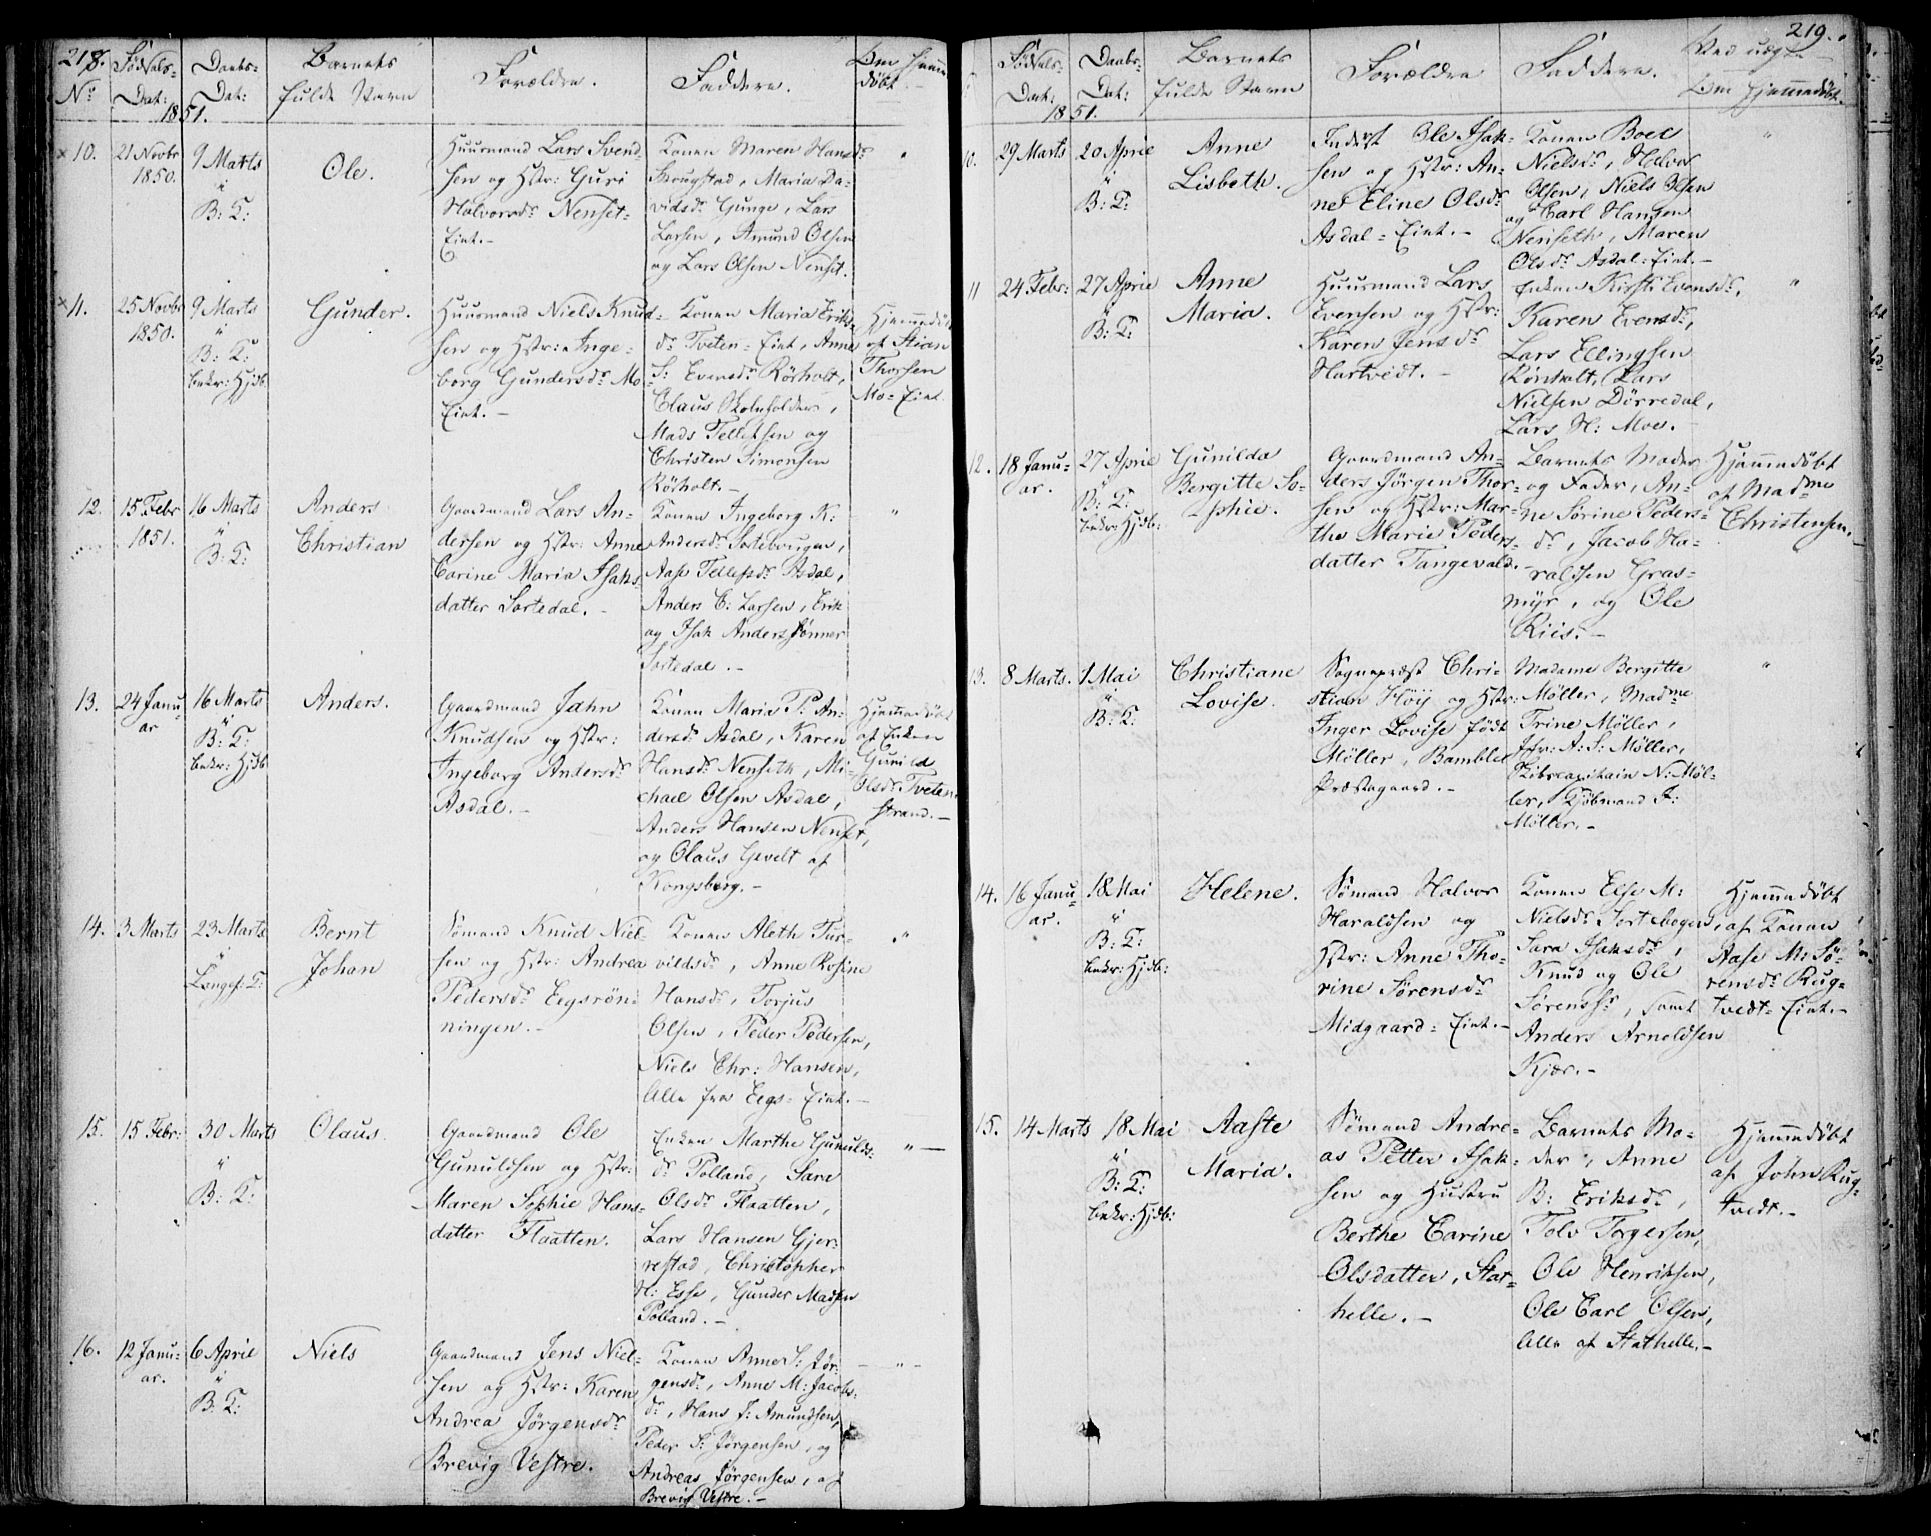 218.
No
Fødsels-
Dat:
Daabs-
Dat:
1851.
Barnets
fulde Navn
Forældre.
Faddere.
Om Hjemme
døbt.
10.
21 Novbr
1850.
9 Marts
"
B: K:
Ole.
Huusmand Lars Svend-
sen og Hstr: Guri
Halvorsdr Nenset-
Eiet.-
Konen Maren Hansdr
Skougstad, Maria Da-
vidsdr Gunge, Lars
Larsen, Amund Olsen
og Lars Olsen Nenset.
"
11.
25 Novbr
1850.
9 Marts
"
B: K:
bekr: Hjdb
Gunder.
Huusmand Niels Knud-
sen og Hstr: Inge-
borg Gundersdr Mo-
Eiet.-
Konen Maria Eriks
dr Tveten-Eiet, Anne
S: Evensdr Rörholt,
Claus Skoleholder,
Mads Tellefsen og
Christen Simonsen
Rörholt.-
Hjemmedöbt
af Stian
Thorsen
Mo-Eiet
12.
15 Febr
1851.
16 Marts
"
B: K:
Anders
Christian
Gaardmand Lars An-
dersen og Hstr: Anne
Carine Maria Isaks
datter Sortedal.-
Konen Ingeborg K:
Andersdr Sortebougen,
Aase Tellefsdr Asdal,
Anders C: Larsen, Erik
og Isak Anderssönner
Sortedal.-
"
13.
24 Janu-
ar
16 Marts
"
B: K:
bekr: Hjdb
Anders.
Gaardmand Jahn
Knudsen og Hstr:
Ingeborg Andersdr
Asdal.-
Konen Maria P: An-
dersdr Asdal, Karen
Hansdr Nenseth, Mi-
chael Olsen Asdal,
Anders Hansen Nenset,
og Olaus Gevelt af
Kongsberg.-
Hjemmedöbt
af Enken
Gunild
Olsdr Tveten
strand.-
14.
3 Marts
23 Marts
"
Langes: K:
Bernt
Johan
Sömand Knud Niel-
sen og Hstr: Andrea
Pedersdr Eegsrön-
ningen.-
Konen Aleth Tur-
vildsdr, Anne Rosine
Hansdr, Torjus
Olsen, Peder Pedersen,
Niels Chr: Hansen,
Alle fra Eegs-Eiet.-
"
15.
15 Febr:
30 Marts
"
B: K:
Olaus.
Gaardmand Ole
Gunuldsen og Hstr:
Maren Sophie Hans-
datter Flaatten.
Enken Marthe Gunulds-
dr Tolland, Sara
Olsdr Flaatten,
Lars Hansen Gjer-
restad, Christopher
H: Esse, Gunder Madsen
Tolland.-
"-
16.
12 Janu-
ar.
6 April
"
B: K:
Niels
Gaardmand Jens Niel-
sen og Hstr: Karen
Andrea Jörgensdr
Brevig Vestre.
Konen Anne S: Jör-
gensdr, Anne M: Jacobs-
dr, Hans J: Amundsen,
Peder S: Jörgensen, og
Andreas Jörgensen, af
Brevig Vestre.-
-"-
219.
Fødsels-
Dat:
Daabs-
Dat:
1851.
Barnets
fulde Navn
Forældre
Faddere.
Om Hjemmedöbt.
10.
29 Marts
20 April
"
B: K:
Anne
Lisbeth.
Inderst Ole Isak-
sen og Hstr: An-
ne Eline Olsdr
Asdal-Eiet.-
Konen Boel
Nielsdr, Halvor
Olsen, Niels Olsen
og Carl Hansen
Nenseth, Maren
Olsdr Asdal-Eiet.-
"
11
24 Febr:
27 April
"
B: K:
Anne
Maria.
Huusmand Lars
Evensen og Hstr:
Karen Jensdr
Hartvedt.-
Enken Kirsti Evensdr,
Karen Evensdr,
Lars Ellingsen
Rönholt, Lars
Nielsen Dörredal,
Lars H: Moe.-
"
12.
18 Janu-
ar.
27 April
"
B: K:
bekr: Hjdb:
Gunilda
Bergitte So-
phie.
Gaardmand An-
ders Jörgen Thor-
sen og Hstr: Mar-
the Marie Peders-
datter Tangevald.-
Barnets Moder
og Fader, An-
ne Sorine Peders-
dr, Jacob Ha-
raldsen Gras-
myr, og Ole
Riis.-
Hjemmedöbt
af Madme
Christensen.-
13.
8 Marts.
1 Mai
"
B: K:
Christiane
Lovise.
Sognepræst Chri-
stian Höy og Hstr:
Inger Lovise född
Möller, Bamble
Præstegaard.-
Madame Bergitte
Möller, Madme
Trine Möller,
Jfr: A: S: Möller,
Skibscapitain N: Möl-
ler, Kjöbmand F:
Möller.-
"
14.
16 Janu-
ar.
18 Mai
"
B: K:
bekr: Hjdb:
Helene.
Sömand Halvor
Haraldsen og
Hstr: Anne Tho-
rine Sörensdr
Midgaard-Eiet.-
Konen Else M:
Nielsdr Sortebogen,
Sara Isaksdr,
Knud og Ole
Sörenssr, samt
Anders Arnoldsen
Kjær.-
Hjemmedöbt
af Konen
Aase M: Sö-
rensdr Rug-
tvedt-Eiet.-
15.
14 Marts
18 Mai
"
B: K:
bekr: Hjdb:
Aaste
Maria.
Sömand Andre-
as Petter Isak-
sen og Hustru
Berthe Carine
Olsdatter, Stat-
helle.-
Barnets Mo-
der, Anne
B: Eriksdr,
Tolv Torgersen,
Ole Henriksen,
Ole Carl Olsen,
Alle af Stathelle.-
Hjemmedöbt
af John Rug-
tvedt.-